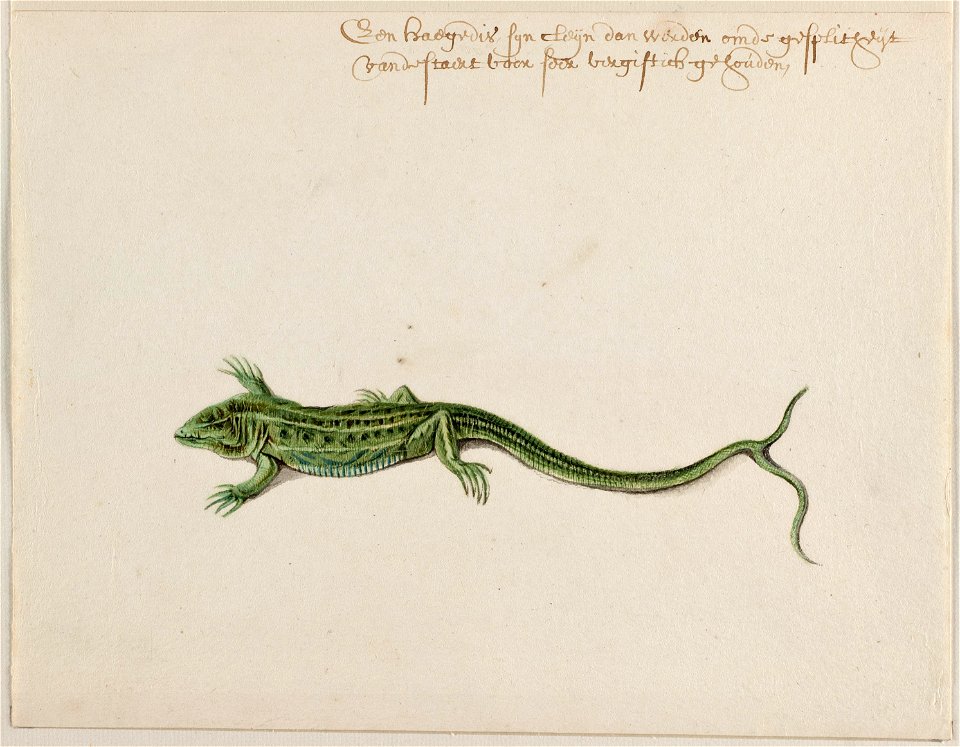 Een haegedis syn cleyn dan werden om de gesplitheyt
van de staert voor seer vergiftich gehouden,